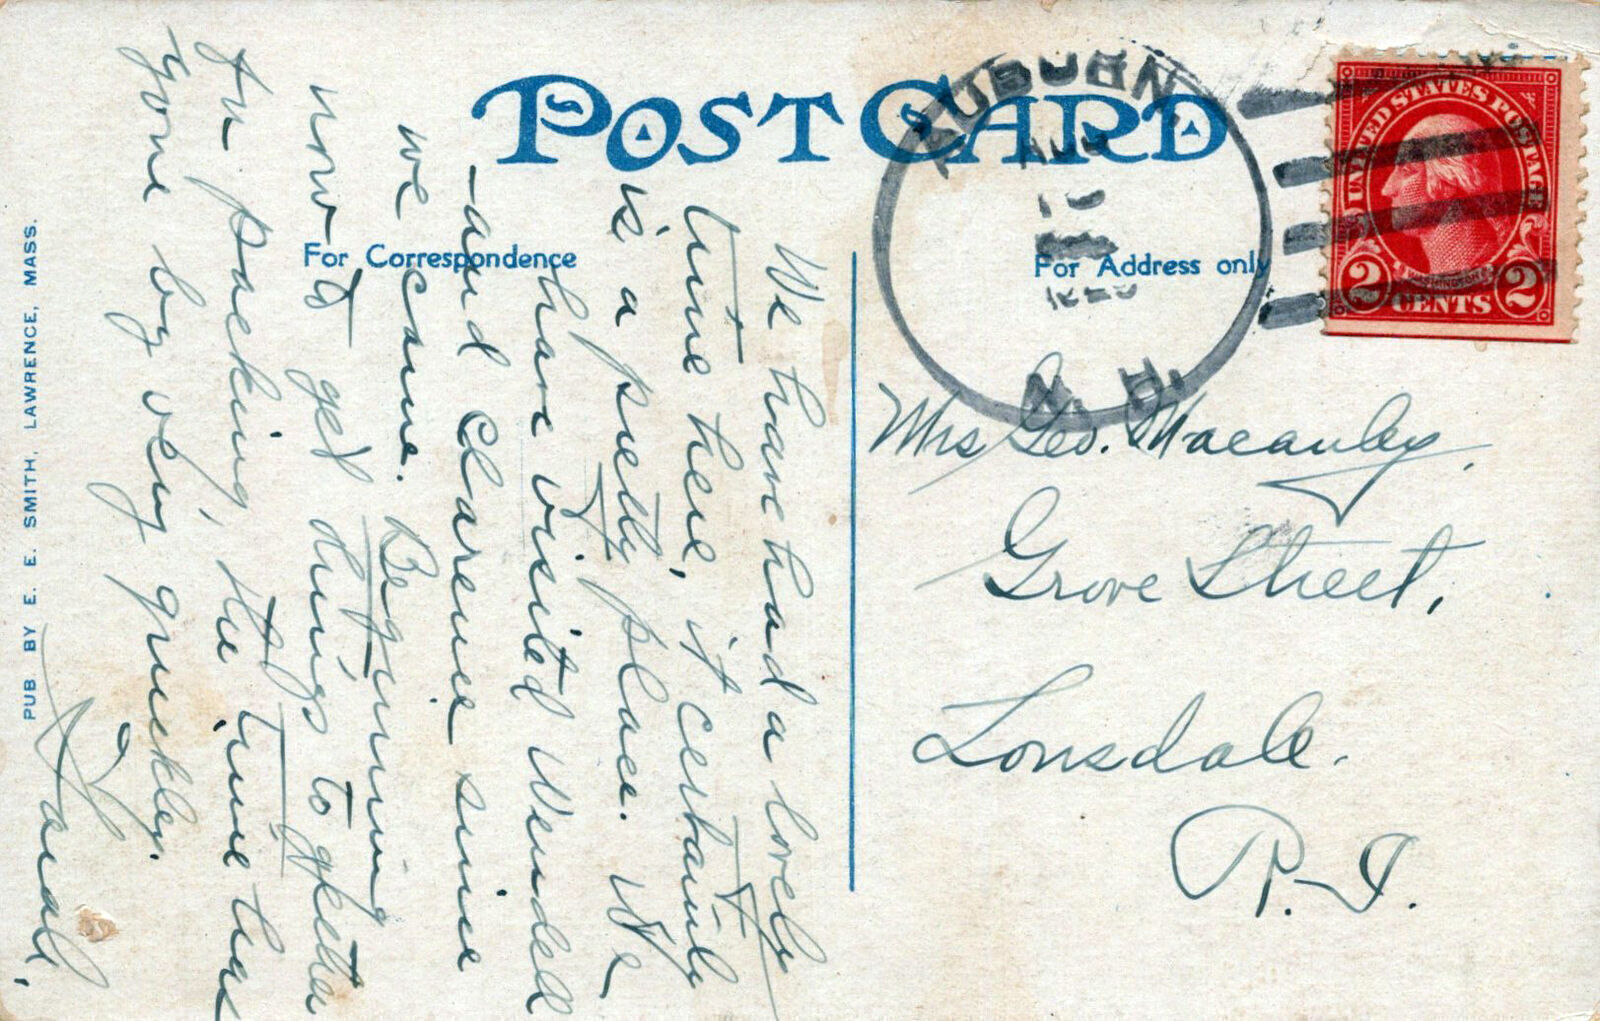 POST CARD
For Correspondence
For Address only
AUBURN,
N. H.
UNITED STATES POSTAGE
WASHINGTON
2 CENTS 2
We have had a lovely
time here, it certainly
is a pretty place. We
have visited Wendell
- and Clarence since
we came. Beginning
now to get things together
in packing, the time has
gone by very quickly.
Sarah.
Mrs Geo. Macauley,
Grove Street,
Lonsdale.
R.I.
PUB BY E. E. SMITH, LAWRENCE, MASS.